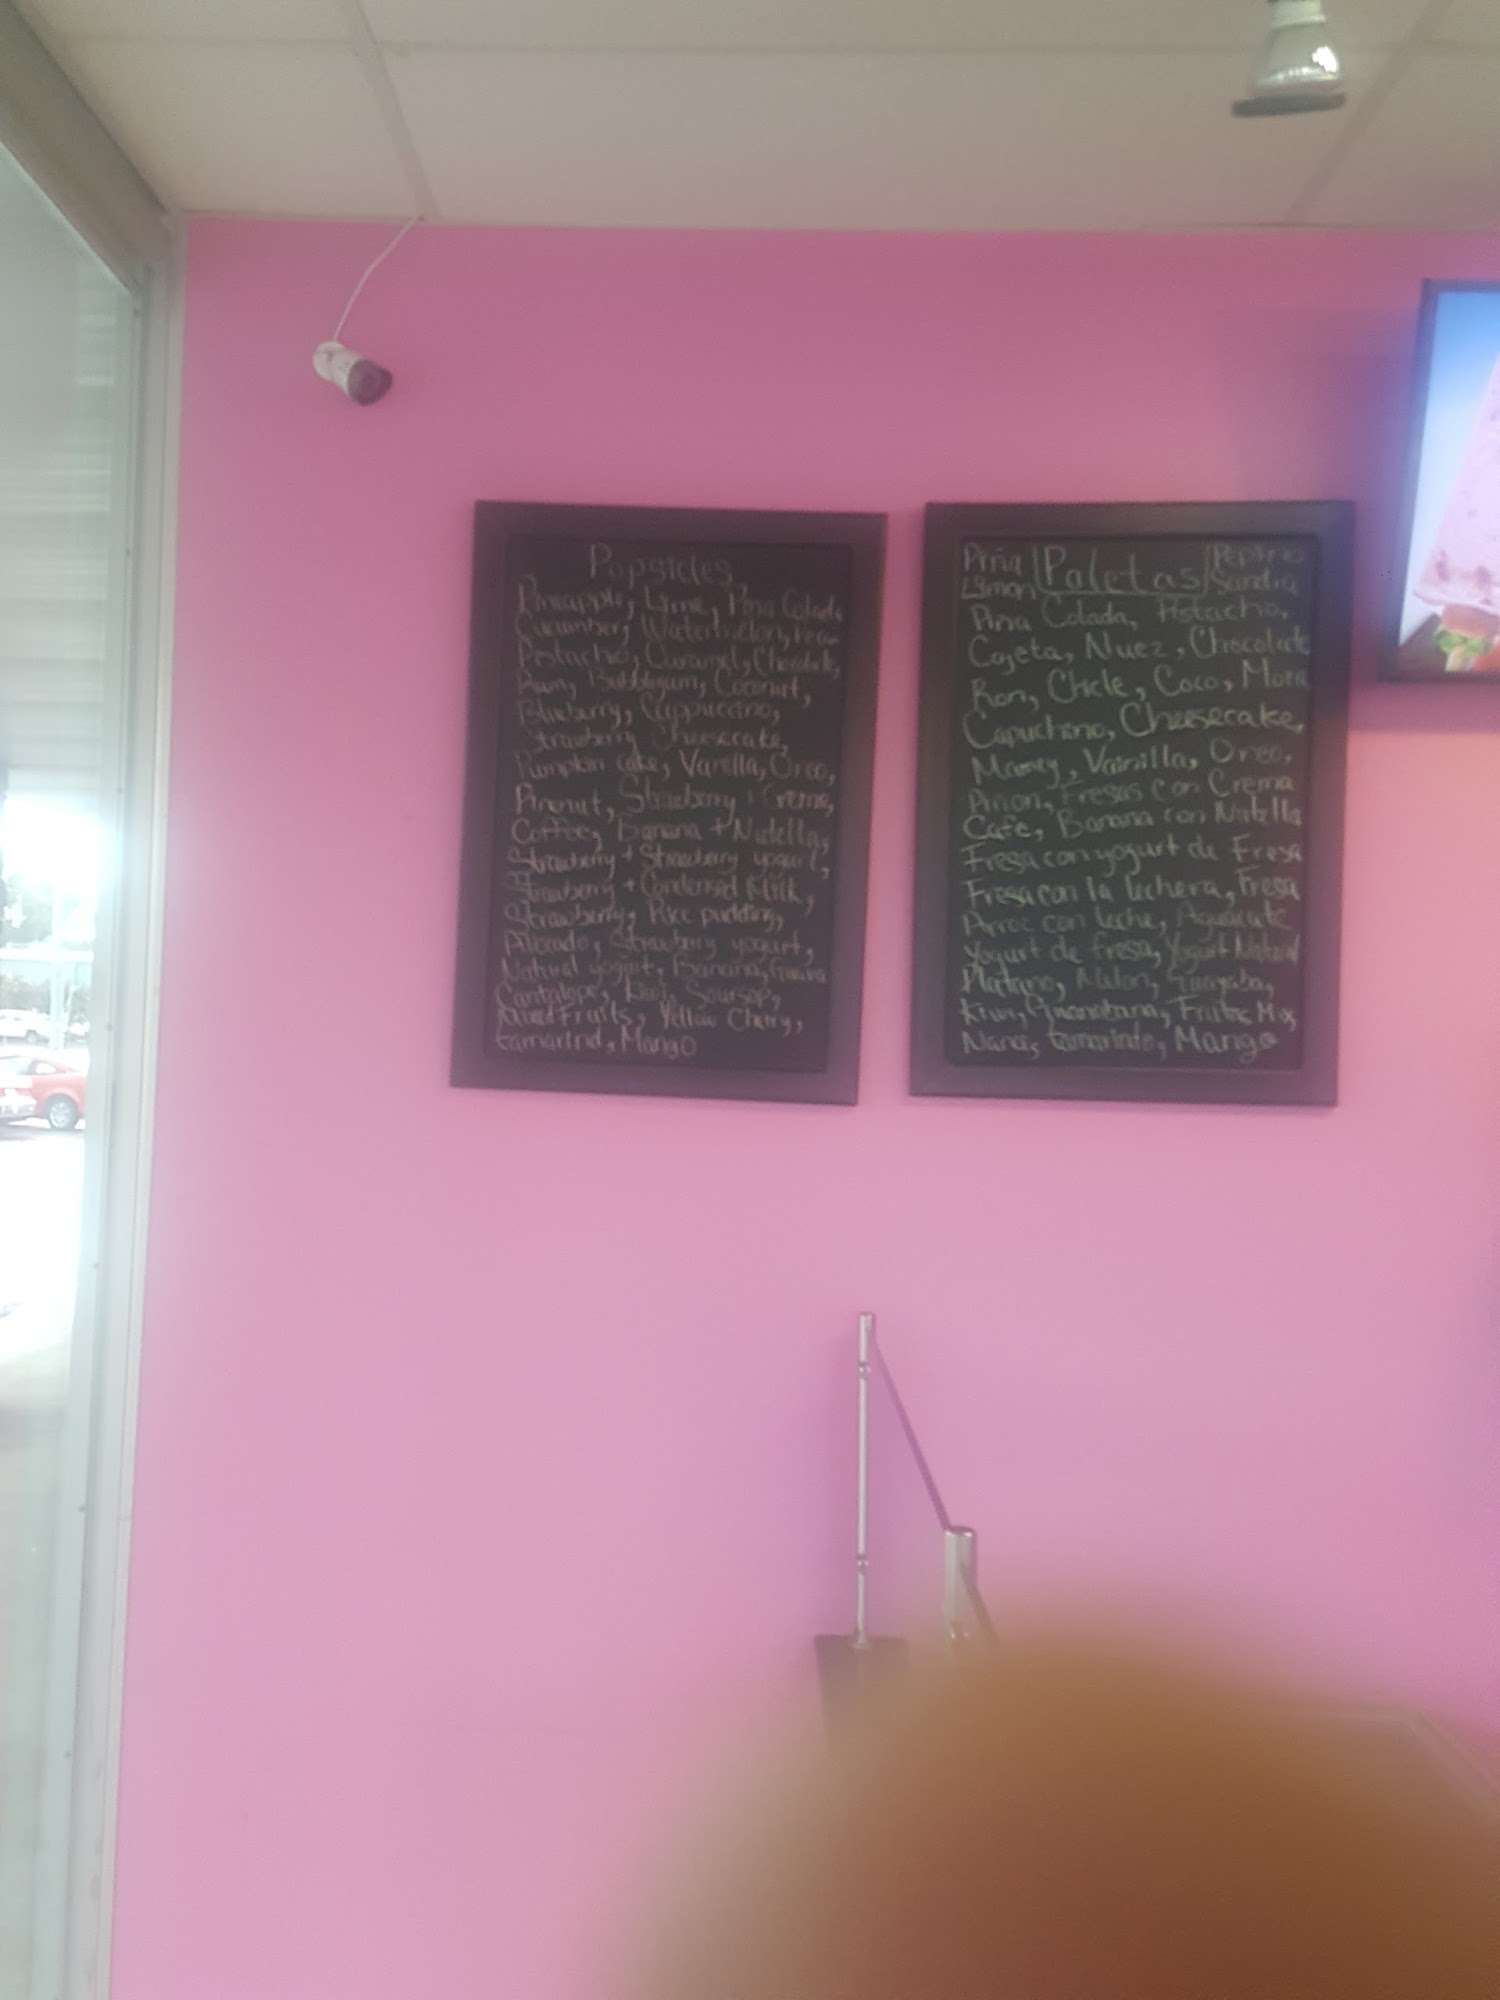 Popsicles
Pineapple, Lime, Pina Colada
Cucumber, Watermelon,
Pistachio, Caramel, Chocolate,
Rum, Bubblegum, Coconut,
Blueberry, Cappuccino,
Strawberry Cheesecake,
Pumpkin cake, Vanilla, Oreo,
Pinenut, Strawberry + Creme,
Coffee, Banana + Nutella,
Strawberry + Strawberry yogurt,
Strawberry + Condensed Milk,
Strawberry, Rice pudding,
Strawberry yogurt,
Natural yogurt, Banana, Guava
Cantalope, Kiwi, Soursop,
Mixed Fruits, Yellow Cherry,
tamarind, Mango
Piña Paletas Pepino
Limon Sandia
Piña Colada, Pistacho,
Cajeta, Nuez, Chocolate
Ron, Chicle, Coco, Mora
Capuchino, Cheesecake,
Mamey, Vainilla, Oreo,
Piñon, Fresas con Crema
Cafe, Banana con Nutella
Fresa con yogurt de Fresa
Fresa con la lechera, Fresa
Arroz con leche, Aguacate
Yogurt de fresa, Yogurt Natural
Platano, Melon, Guayaba,
Kiwi, Guanabana, Frutas Mix,
Nana, tamarindo, Mango